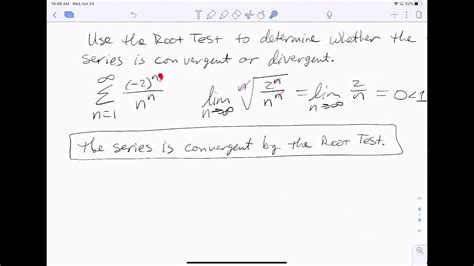 10:48 AM Wed Jun 24
Use the Root Test to determine whether the
series is convergent or divergent.
∞ ∑ n=1 (-2)^n / n^n lim n→∞ ⁿ√(2^n / n^n) = lim n→∞ 2/n = 0 < 1
The series is convergent by the Root Test.